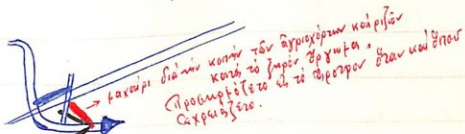 μαχαίρι διὰ τὴν κοπὴν τῶν ἀγριοχόρτων καὶ ριζῶν
κατὰ τὸ ξηρὸν ὄργωμα.
Προσηρμόζετο εἰς τὸ ἄροτρον ὅταν καὶ ὅπου
ἐχρειάζετο.